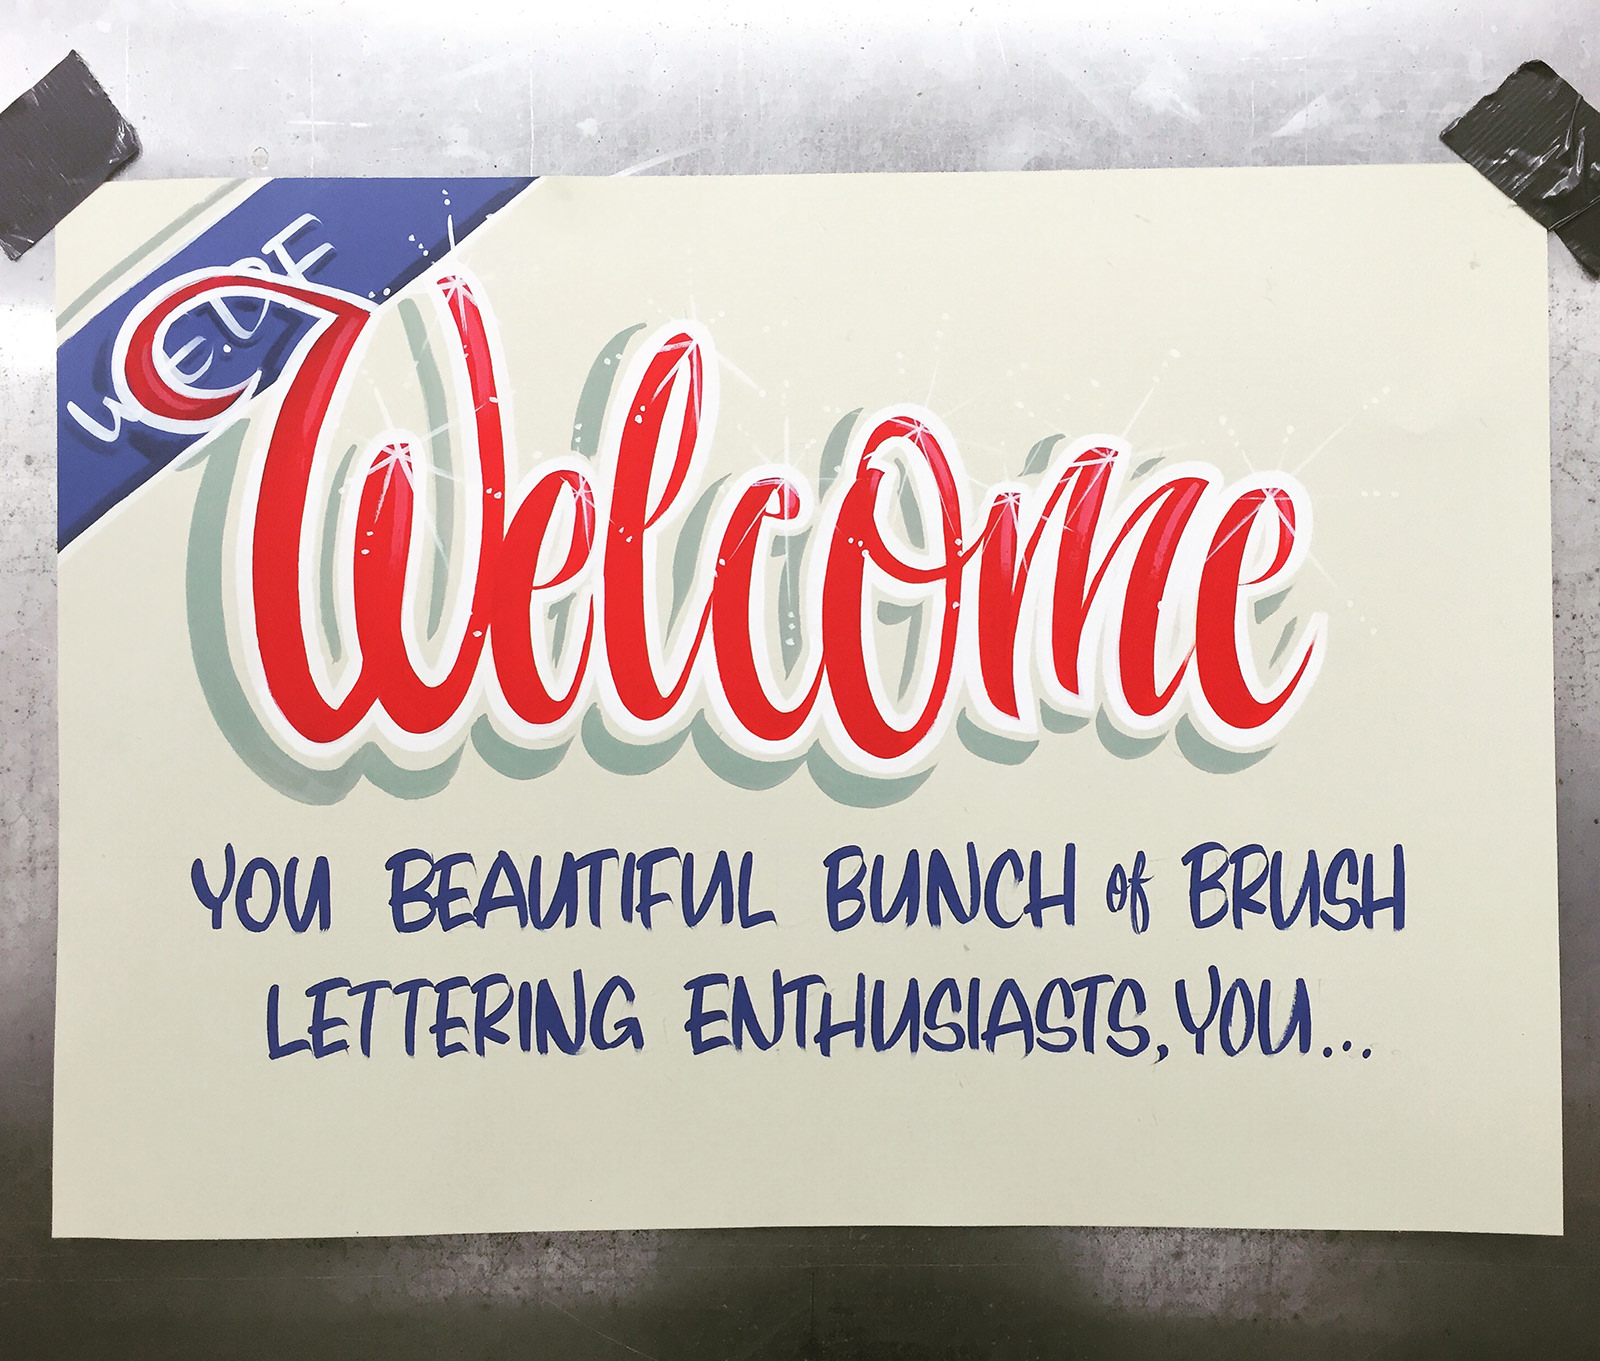 Welcome
YOU BEAUTIFUL BUNCH of BRUSH
LETTERING ENTHUSIASTS, YOU...